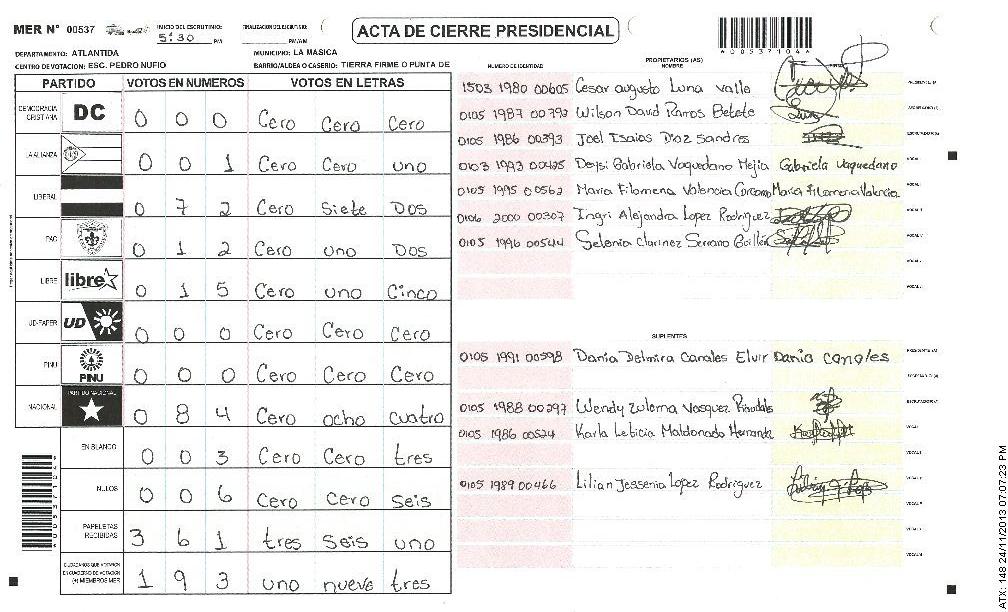 MER Nº 00537
INICIO DEL ESCRUTINIO:
5:30 PM
FINALIZACION DEL ESCRUTINIO:
PM/AM
ACTA DE CIERRE PRESIDENCIAL
A00537104A
DEPARTAMENTO: ATLANTIDA
MUNICIPIO: LA MASICA
CENTRO DE VOTACION: ESC. PEDRO NUFIO
BARRIO/ALDEA O CASERIO: TIERRA FIRME O PUNTA DE
PARTIDO VOTOS EN NUMEROS VOTOS EN LETRAS
DEMOCRACIA CRISTIANA DC 0 0 0 Cero Cero Cero
LA ALIANZA 0 0 1 Cero Cero uno
LIBERAL 0 7 2 Cero Siete Dos
PAC 0 1 2 Cero uno Dos
LIBRE libre 0 1 5 Cero uno Cinco
UD-FAPER UD 0 0 0 Cero Cero Cero
PINU PINU 0 0 0 Cero Cero Cero
NACIONAL PARTIDO NACIONAL 0 8 4 Cero ocho cuatro
EN BLANCO 0 0 3 Cero Cero tres
NULOS 0 0 6 Cero Cero Seis
PAPELETAS RECIBIDAS 3 6 1 tres Seis uno
CIUDADANOS QUE VOTARON EN CUADERNO DE VOTACION (+) MIEMBROS MER 1 9 3 uno nueve tres
NUMERO DE IDENTIDAD
PROPIETARIOS (AS)
NOMBRE
1503 1980 00605 Cesar augusto Luna Valle
0105 1987 00792 Wilson David Ramos Betete
0105 1986 00393 Joel Isaias Diaz Sandres
0103 1993 00425 Deysi Gabriela Vaquedano Mejia Gabriela Vaquedano
0105 1995 00562 Maria Filomena Valencia Maria Filomena Valencia
0106 2000 00307 Ingri Alejandra Lopez Rodriguez
0105 1996 00544 Selenia Clarinez Serrano
SUPLENTES
0105 1991 00598 Dania Delmira Canales Elvir Dania Canales
0105 1988 00297 Wendy Zulema Vasquez
0105 1986 00524 Karla Leticia Maldonado
0105 1989 00466 Lilian Jessenia Lopez Rodriguez
ATX: 148 24/11/2013 07:07:23 PM